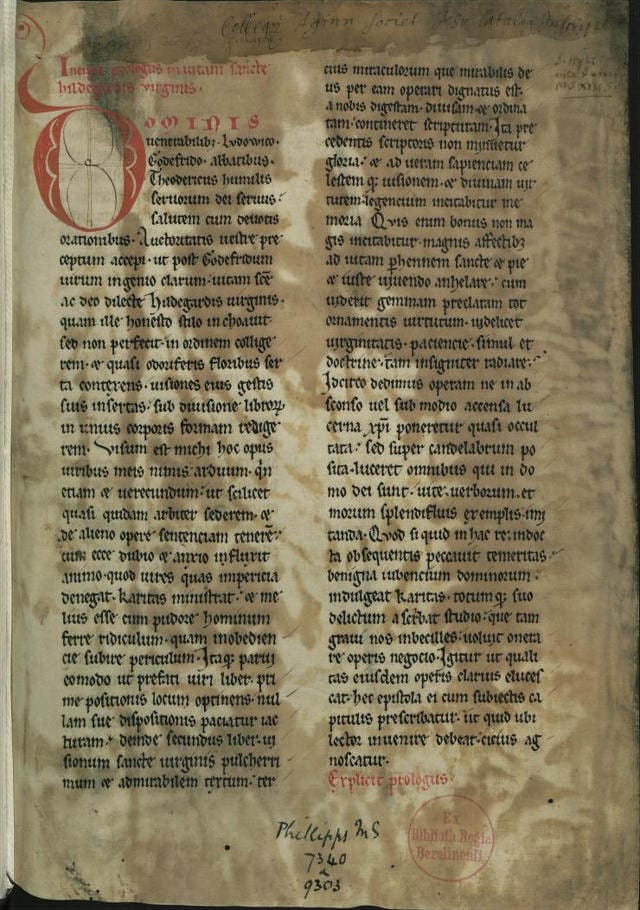 Collegij Agen Societ Jesu
Incipit prologus in uitam sancte
hildegardis uirginis.
DOMINIS
uenerabilib; Ludowico.
Godefrido. abbatibus.
Theodericus humilis
seruorum dei seruus.
salutem cum deuotis
orationibus. Auctoritatis uestre pre
ceptum accepi. ut post Godefridum
uirum ingenio clarum. uitam scē
ac deo dilecte hildegardis uirginis.
quam ille honesto stilo inchoauit.
sed non perfecit. in ordinem collige
rem. & quasi odoriferis floribus ser
ta contexens. uisiones eius gestis
suis insertas. sub diuisione libroꝝ
in unius corporis formam redige
rem. Visum est michi hoc opus
uiribus meis nimis arduum. q̄n
etiam & uerecundum. ut scilicet
quasi quidam arbiter sederem. &
de alieno opere sentenciam tenerē.
cum ecce dubio & anxio influxit
animo. quod uires quas impericia
denegat. karitas ministrat. & me
lius esse cum pudore hominum
ferre ridiculum. quam inobedien
cie subire periculum. Itaq; parui
comodo ut prefati uiri liber. pri
me positionis locum optinens. nul
lam sue dispositionis paciatur iac
turam. deinde secundus liber. ui
sionum sancte uirginis pulcherri
mum & admirabilem textum. ter
cius miraculorum que mirabilis de
us per eam operari dignatus est.
a nobis digestam. diuisam. & ordina
tam. contineret scripturam. Ita pre
cedentis scriptoris non minuetur
gloria. & ad ueram sapienciam ce
lestem q; uisionem. & diuinam uir
tutem. legencium incitabitur me
moria. Quis enim bonus non ma
gis incitabitur. magnis affectib;
ad uitam perhennem sancte & pie
& iuste uiuendo anhelare. cum
uiderit gemmam preclaram tot
ornamentis uirtutum. uidelicet
uirginitatis. paciencie. simul et
doctrine. tam insigniter radiare.
Idcirco dedimus operam ne in ab
sconso uel sub modio accensa lu
cerna xp̄i poneretur quasi occul
tata. sed super candelabrum po
sita. luceret omnibus qui in do
mo dei sunt. uite. uerborum. et
morum splendifluis exemplis. imi
tanda. Quod si quid in hac re. indoc
ta obsequentis peccauit temeritas.
benigna iubencium dominorum.
indulgeat karitas. totum q; suo
delictum ascribat studio. que tam
graui nos inbecilles. uoluit onera
re operis negocio. Igitur ut quali
tas eiusdem operis clarius eluces
cat. hec epistola ei cum subiectis ca
pitulis prescribatur. ut quid ubi
lector inuenire debeat. cicius ag
noscatur.
Explicit prologus.
Phillipps MS
7340
9303
Ex
Biblioth. Regia
Berolinensi.